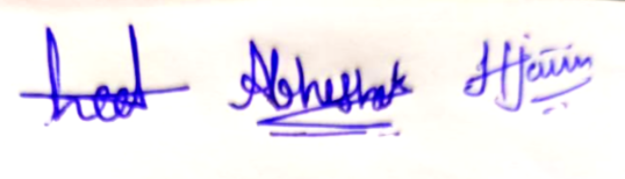 heet Abhishek HJain